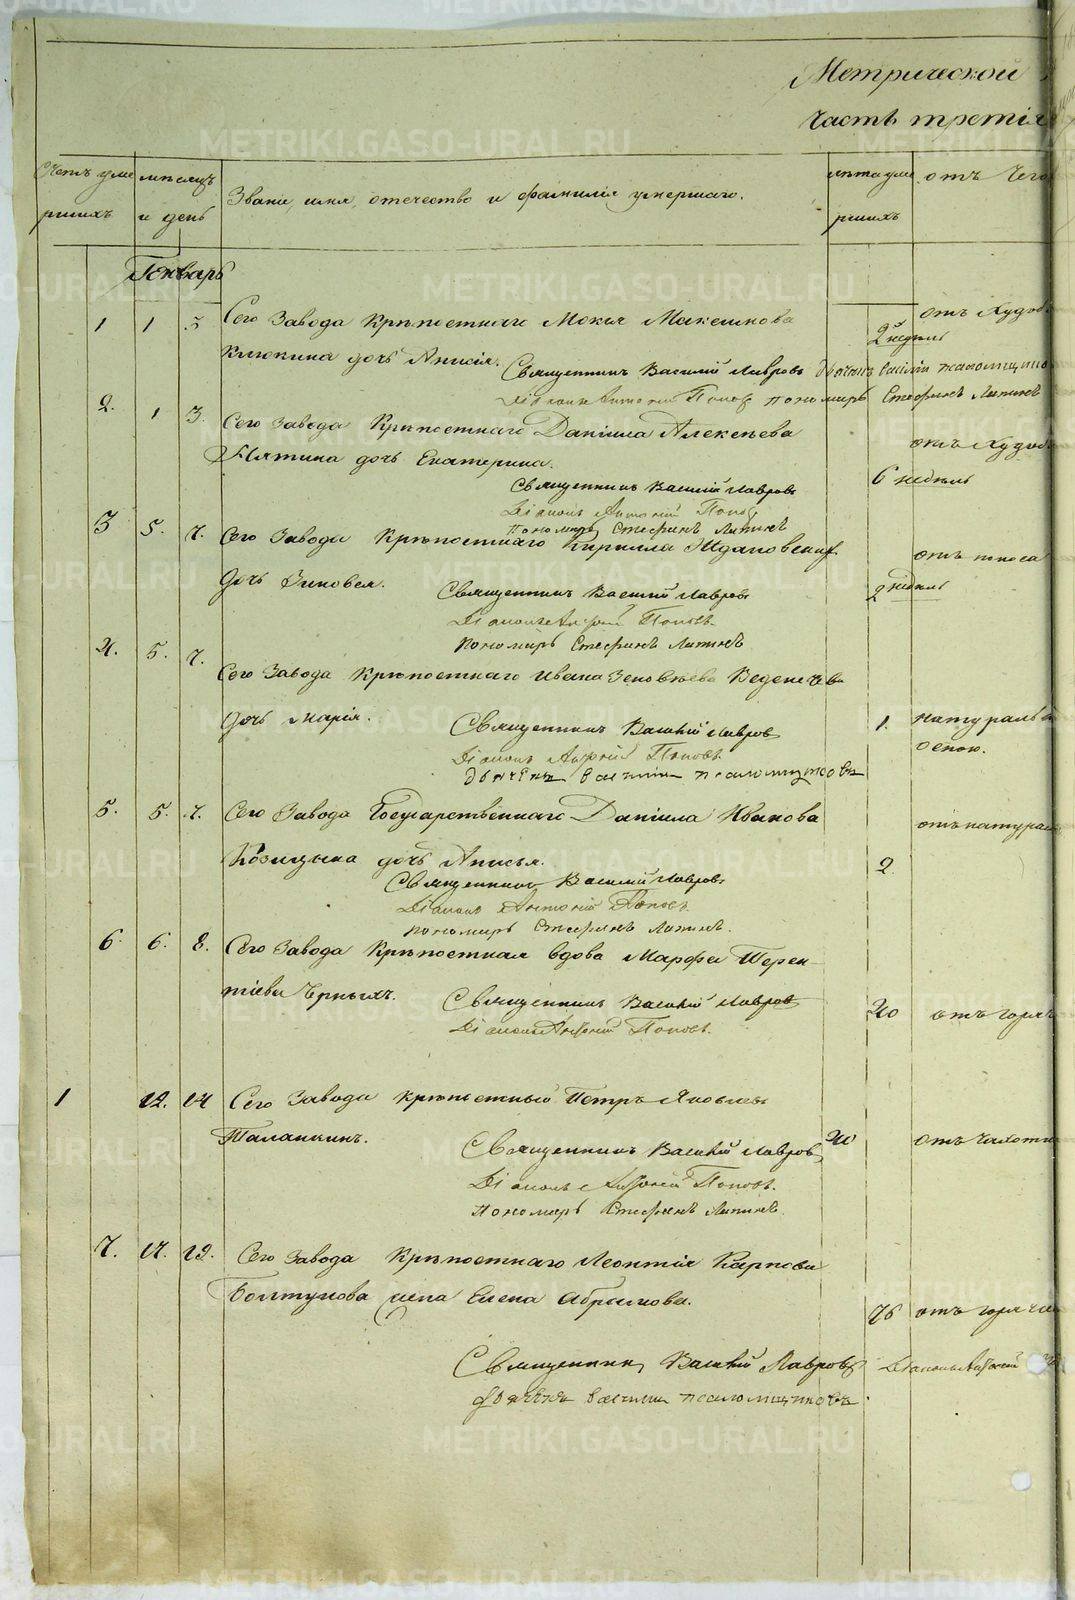 Метрической
Часть третія
Счетъ уме
ршихъ
мѣсяцъ
и день
Званіе, имя, отечество и фамилія умершаго.
лѣта уме
ршихъ
отъ Чего
Генварь
1 1 3 Сего Завода Крѣпостнаго Мокія Максимова
2 недѣль
отъ Худоб
Клюкина дочь Анисія.
Священникъ Василій Лавровъ дьячекъ Василій Псаломщиковъ
Діаконъ Антоній Поповъ пономарь Стефанъ Ляпинъ
2. 1 3. Сего Завода Крѣпостнаго Даніила Алексѣева
отъ Худоб
Пятина дочь Екатерина.
6 недѣль
Священникъ Василій Лавровъ
Діаконъ Антоній Поповъ
пономарь Стефанъ Ляпинъ
3 5. 7. Сего Завода Крѣпостнаго Кирилла Ждановскихъ
отъ поноса
Дочь Зиновья.
2 недѣль
Священникъ Василій Лавровъ
Діаконъ Антоній Поповъ.
Пономарь Стефанъ Ляпинъ
4. 5. 7. Сего Завода Крѣпостнаго Ивана Зеновѣева Веденѣева
Дочь Марія.
1.
натураль
оспою.
Священникъ Василій Лавровъ
Діаконъ Антоній Поповъ.
дьячекъ Василій Псаломщиковъ
5. 5. 7. Сего Завода Государственнаго Даніила Иванова
отъ натурал
Козицына дочь Анисья.
2.
Священникъ Василій Лавровъ
Діаконъ Антоній Поповъ.
пономарь Стефанъ Ляпинъ.
6. 6. 8. Сего Завода Крѣпостная вдова Марфа Терен-
тіева Черныхъ.
40 отъ горяч
Священникъ Василій Лавровъ
Діаконъ Антоній Поповъ.
1 12. 14 Сего Завода крѣпостный Петръ Яковлевъ
Таланкинъ.
40
отъ Чахотк
Священникъ Василій Лавровъ
Діаконъ Антоній Поповъ.
Пономарь Стефанъ Ляпинъ.
7. 17. 19. Сего Завода Крѣпостнаго Леонтія Карпова
Болтунова жена Елена Абрамова.
76 отъ горяч
Священникъ Василій Лавровъ Діаконъ Антоній
дьячекъ Василій Псаломщиковъ.
METRIKI.GASO-URAL.RU